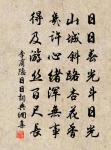 日日春光斗日光
山城斜路杏花香
莫许心绪浑无事
得及游丝百尺长
李商隐日日诗典佣安